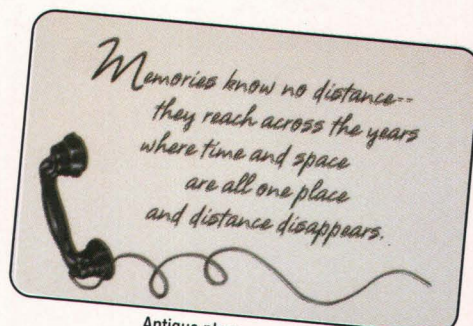 Memories know no distance--
they reach across the years
where time and space
are all one place
and distance disappears.
Antique